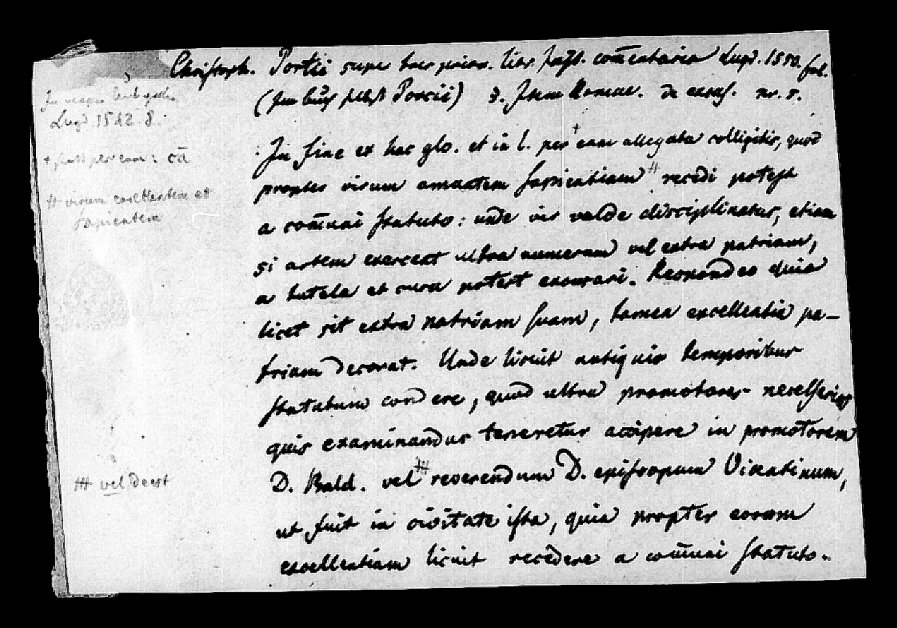 Christoph. Portii super tres prior. libr. Inst. comentaria Lugd. 1550. fol.
(Jm buß selbst Porcii) §. Item Romae. de excus. nr. 5.
Lugd. 1542. 8.
In fine ex hac glo. et in l. per + eam allegata colligitis, quod
+ per eam: cā
propter virum amantem sapientiam # recedi potest
# virum excellentem et
sapientem
a com̄uni statuto: unde vir valde disciplinatus, etiam
si artem exerceat ultra numerum vel extra patriam,
a tutela et cura potest excusari. Respondeo quia
licet sit extra patriam suam, tamen excellentia pa-
triam decorat. Unde licuit antiquis temporibus
statutum condere, quod ultra promotores necessarios
quis examinandus teneretur accipere in promotorem
D. Bald. vel # reverendum D. episcopum Vicentinum,
# vel deest
ut fuit in civitate ista, quia propter eorum
excellentiam licuit recedere a com̄uni statuto.